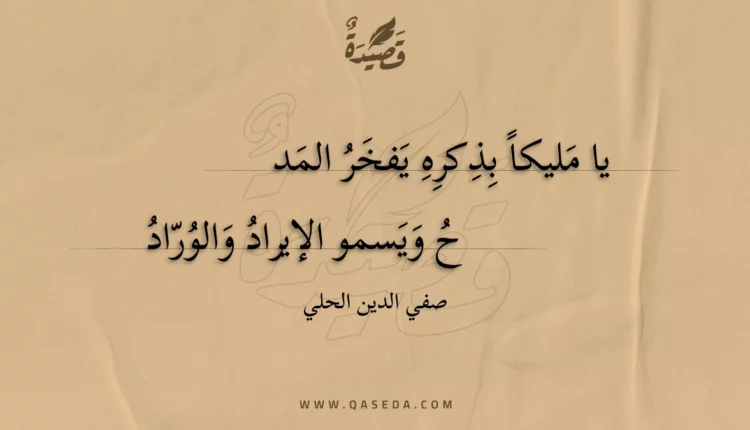 قَصِيدَةٌ
يا مَليكاً بِذِكرِهِ يَفخَرُ المَد
حُ وَيَسمو الإيرادُ وَالوُرّادُ
صفي الدين الحلي
WWW.QASEDA.COM